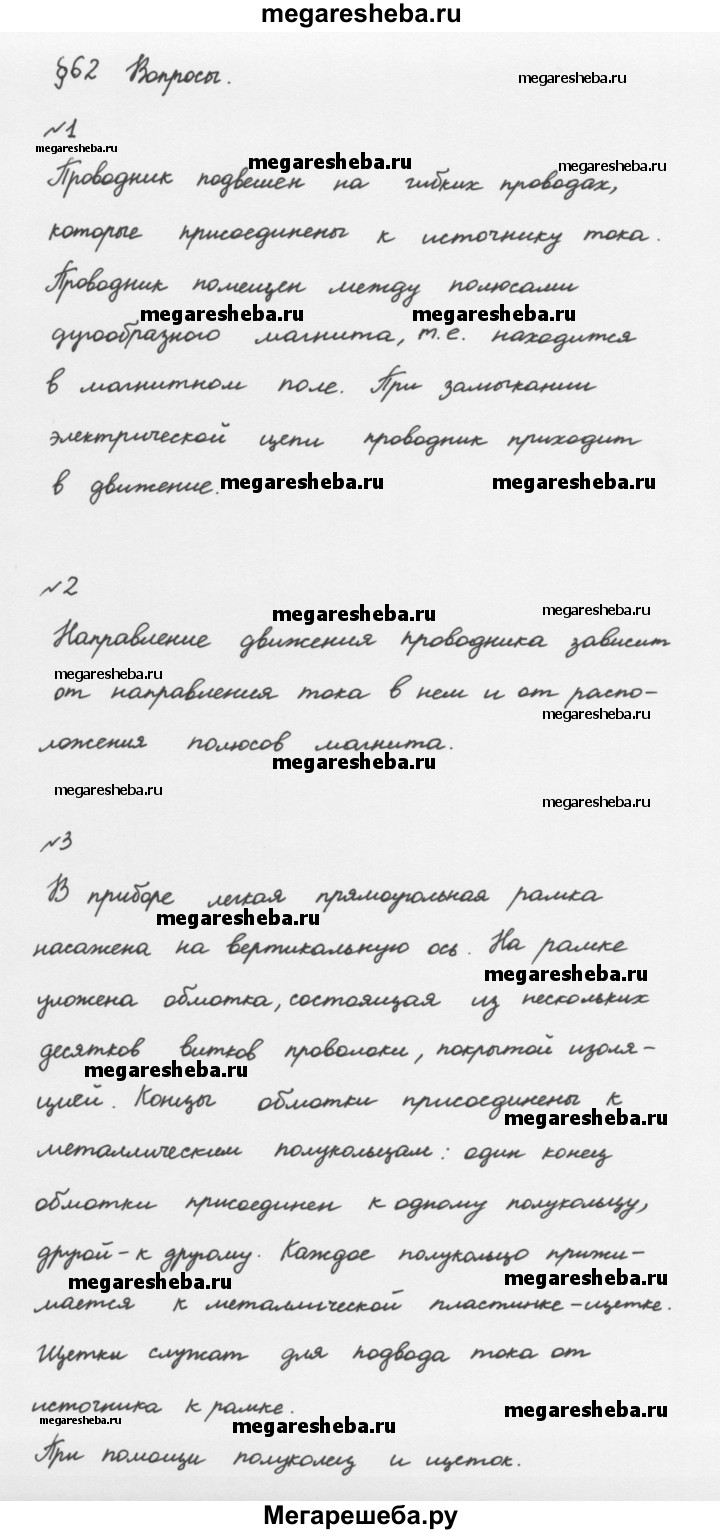 megaresheba.ru
§62 Вопросы.
megaresheba.ru
№1
megaresheba.ru
megaresheba.ru
megaresheba.ru
Проводник подвешен на гибких проводах,
которые присоединены к источнику тока.
Проводник помещен между полюсами
megaresheba.ru
megaresheba.ru
дугообразного магнита, т.е. находится
в магнитном поле. При замыкании
электрической цепи проводник приходит
в движение.
megaresheba.ru
megaresheba.ru
№2
megaresheba.ru
megaresheba.ru
Направление движения проводника зависит
megaresheba.ru
от направления тока в нем и от распо-
megaresheba.ru
ложения полюсов магнита.
megaresheba.ru
megaresheba.ru
megaresheba.ru
№3
В приборе легкая прямоугольная рамка
megaresheba.ru
насажена на вертикальную ось. На рамке
megaresheba.ru
уложена обмотка, состоящая из нескольких
десятков витков проволоки, покрытой изоля-
megaresheba.ru
цией. Концы обмотки присоединены к
megaresheba.ru
металлическим полукольцам: один конец
обмотки присоединен к одному полукольцу,
другой - к другому. Каждое полукольцо прижи-
megaresheba.ru
megaresheba.ru
мается к металлической пластинке - щетке.
Щетки служат для подвода тока от
источника к рамке.
megaresheba.ru
megaresheba.ru
megaresheba.ru
При помощи полуколец и щеток.
Мегарешеба.ру